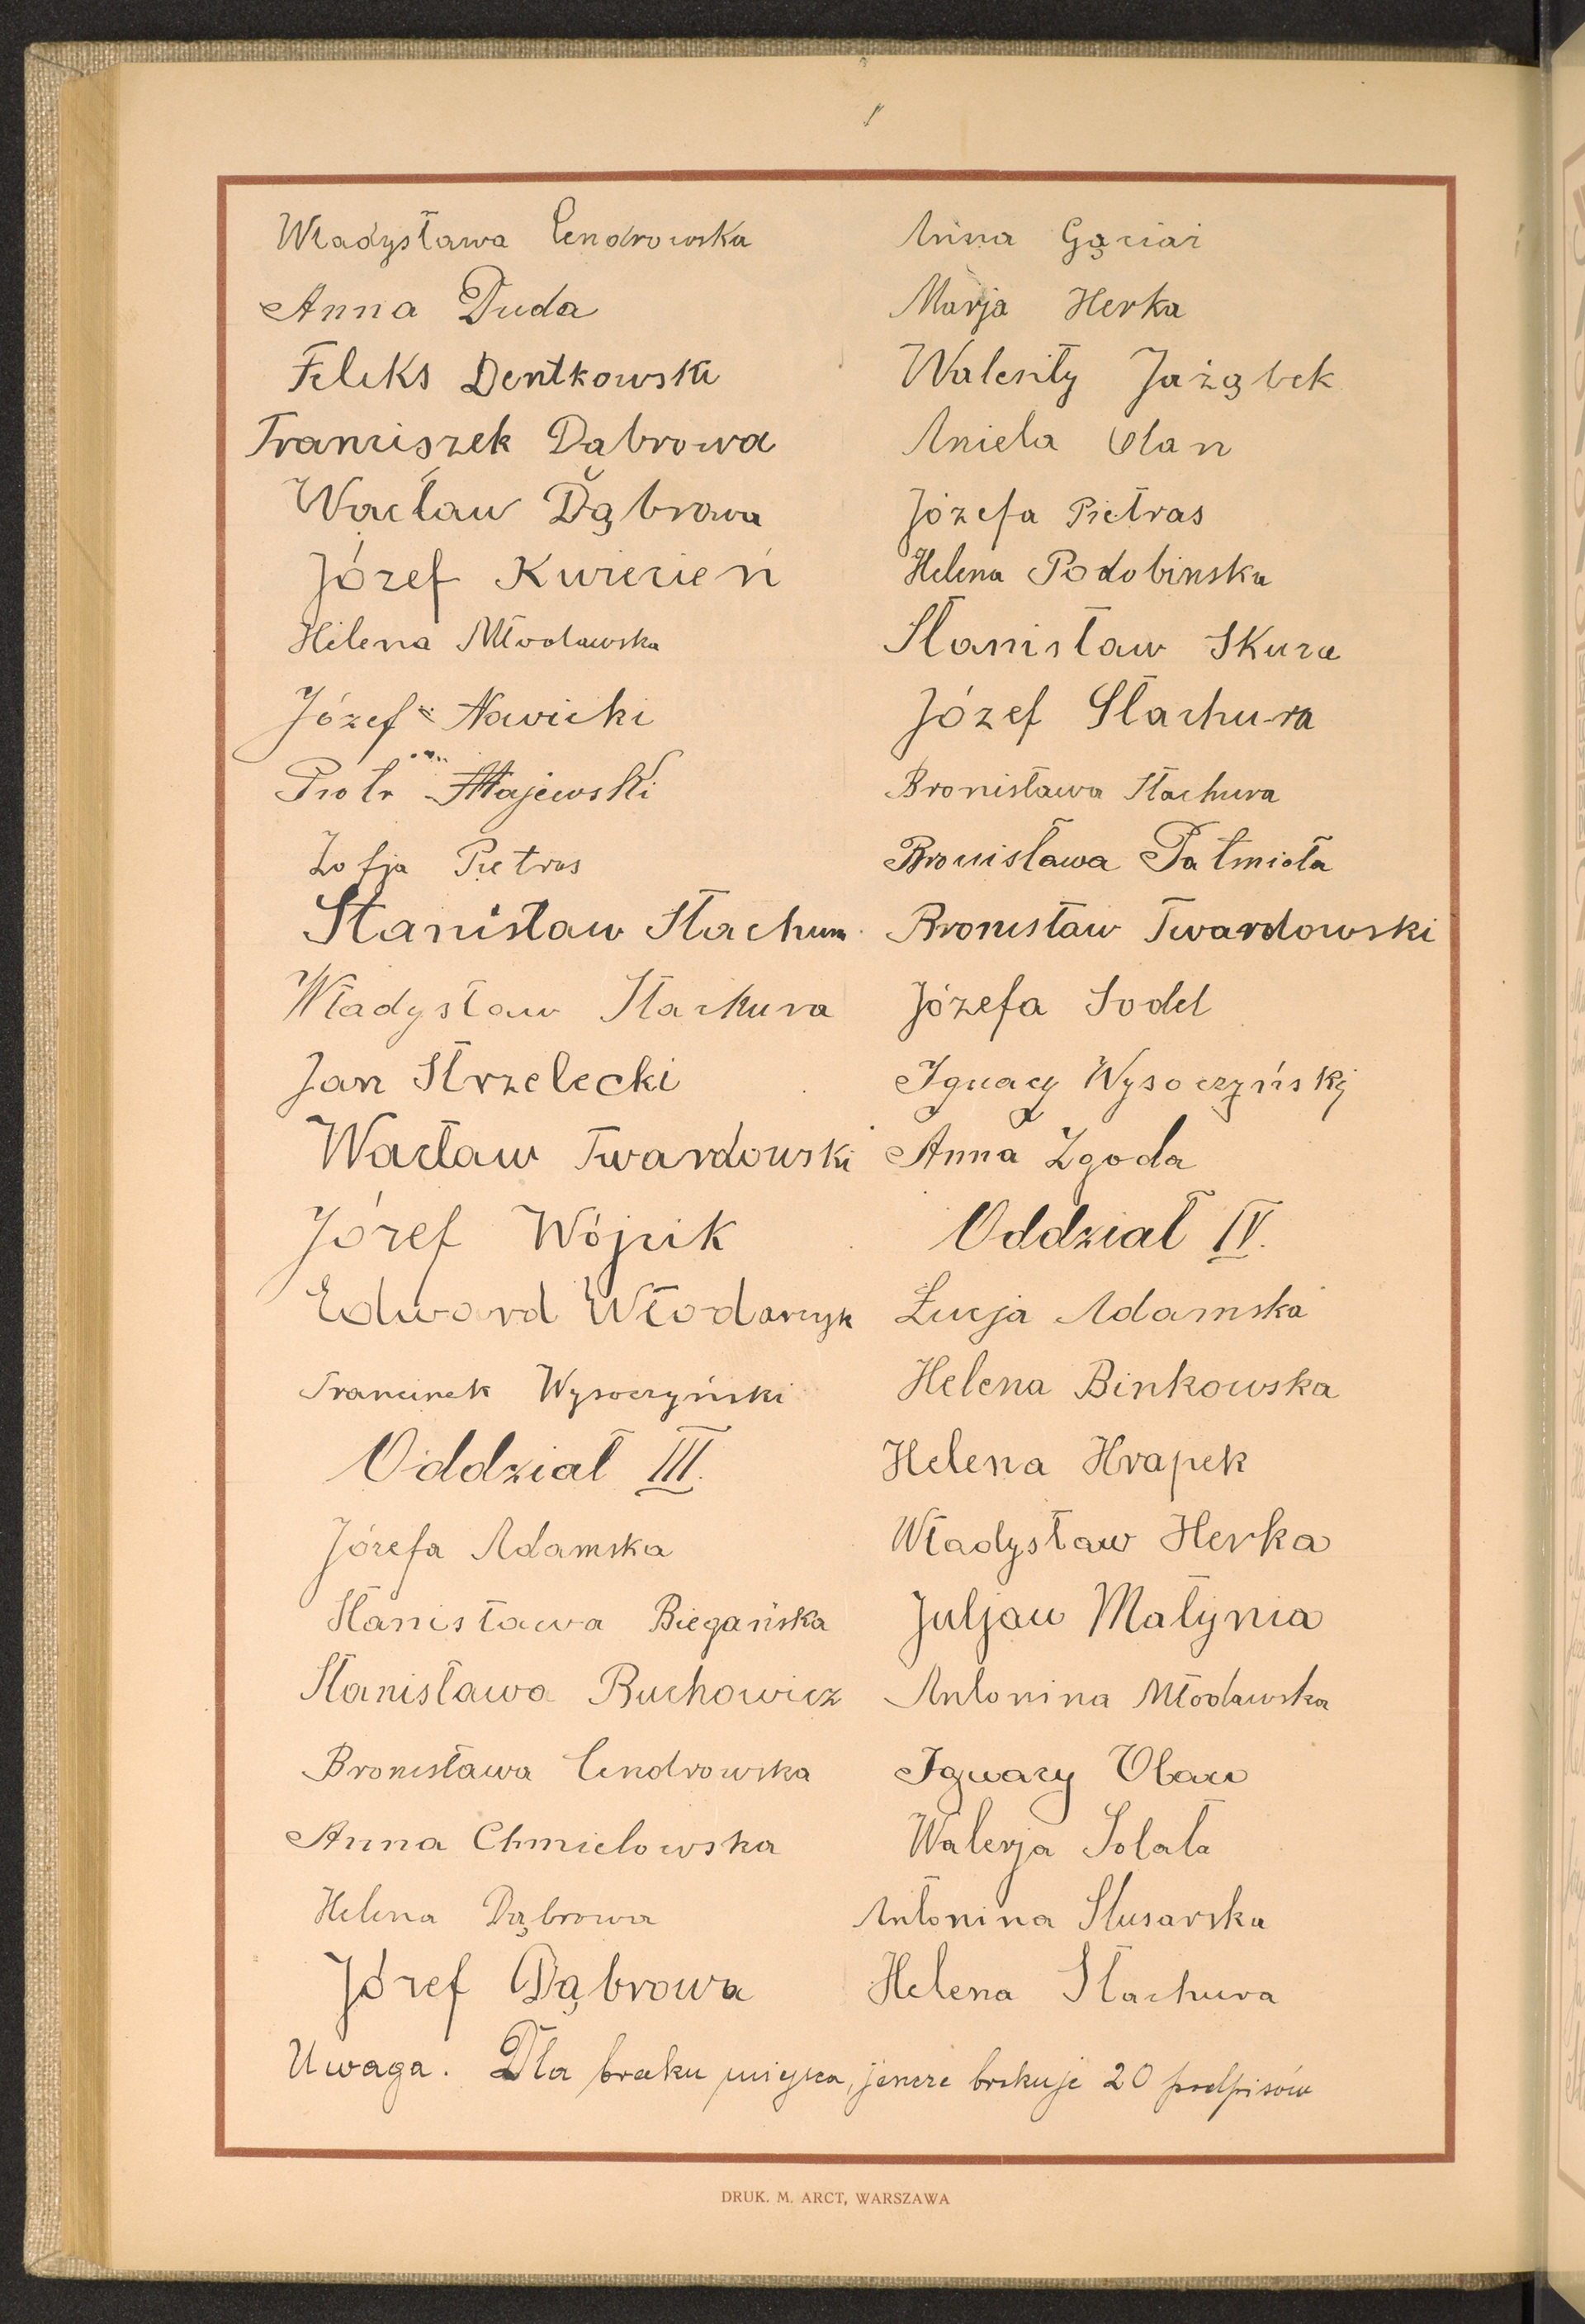 Władysława Cendrowska
Anna Duda
Feliks Dentkowski
Franciszek Dąbrowa
Wacław Dąbrowa
Józef Kwiecień
Helena Młodawska
Józef Nawicki
Piotr Majewski
Zofja Pietras
Stanisław Stachura
Władysław Stachura
Jan Strzelecki
Wacław Twardowski
Józef Wójcik
Edward Włodarczyk
Franciszek Wysoczyński
Oddział III.
Józefa Adamska
Stanisława Biegańska
Stanisława Buchowicz
Bronisława Cendrowska
Anna Chmielowska
Helena Dąbrowa
Józef Dąbrowa
Anna Gąciarz
Marja Herka
Walenty Jażąbek
Aniela Olan
Józefa Pietras
Helena Podobinska
Stanisław Skura
Józef Stachura
Bronisława Stachura
Bronisława Tatmiota
Bronisław Twardowski
Józefa Sodel
Ignacy Wysoczyński
Anna Zgoda
Oddział IV.
Łucja Adamska
Helena Binkowska
Helena Hrapek
Władysław Herka
Juljan Matynia
Antonina Młodawska
Ignacy Olan
Walerja Sołata
Antonina Slusarska
Helena Stachura
Uwaga. Dla braku miejsca, jeszcze brakuje 20 podpisów
DRUK. M. ARCT, WARSZAWA